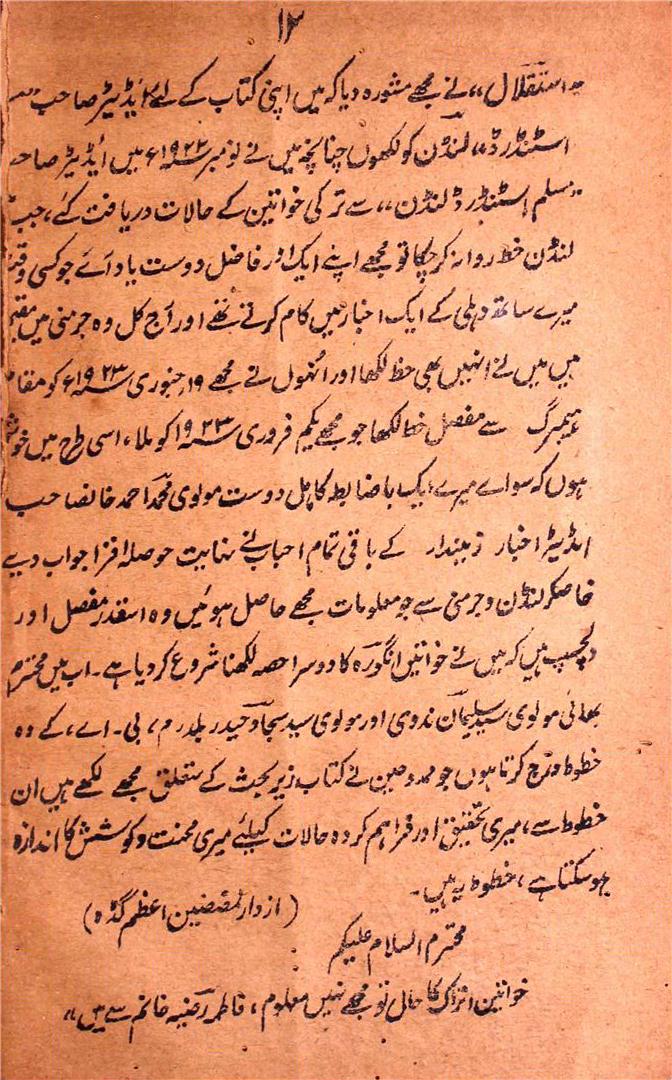 ۱۲
"استقلال" نے مجھے مشورہ دیا کہ میں اپنی کتاب کے لئے ایڈیٹر صاحب
اسٹنڈرڈ" لنڈن کو لکھوں چنانچہ میں نے نومبر ۱۹۲۲ء میں ایڈیٹر صاحب
"مسلم اسٹنڈرڈ لنڈن" سے ترکی خواتین کے حالات دریافت کئے، جب
لنڈن خط روانہ کرچکا تو مجھے اپنے ایک اور فاضل دوست یاد آئے جو کسی وقت
میرے ساتھ دہلی کے ایک اخبار میں کام کرتے تھے اور آج کل وہ جرمنی میں مقیم
ہیں میں نے انہیں بھی خط لکھا اور انہوں نے مجھے ۱۹؍جنوری ۱۹۲۳ء کو مقام
ہیمبرگ سے مفصل خط لکھا جو مجھے یکم فروری ۱۹۲۳ کو ملا، اسی طرح میں خوش
ہوں کہ سوائے میرے ایک باضابطہ کاہل دوست مولوی محمد احمد خانصاحب
اڈیٹر اخبار زمیندار کے باقی تمام احباب نے نہایت حوصلہ افزا جواب دیے
خاصکر لنڈن و جرمنی سے جو معلومات مجھے حاصل ہوئیں وہ اسقدر مفصل اور
دلچسپ ہیں کہ میں نے خواتین انگورہ کا دوسرا حصہ لکھنا شروع کردیا ہے۔ اب میں محترم
بھائی مولوی سید سلیمان ندوی اور مولوی سید سجاد حیدر یلدرم، بی۔ اے، کے وہ
خطوط درج کرتا ہوں جو ممدوحین نے کتاب زیر بحث کے متعلق مجھے لکھے ہیں ان
خطوط سے، میری تحقیق اور فراہم کردہ حالات کیلئے میری محنت و کوشش کا اندازہ
ہوسکتا ہے، خطوط یہ ہیں۔
(از دار المصنفین اعظم گڈہ)
محترم السلام علیکم
خواتین اتراک کا حال تو مجھے نہیں معلوم، فاطمہ رضیہ خانم سے میں"